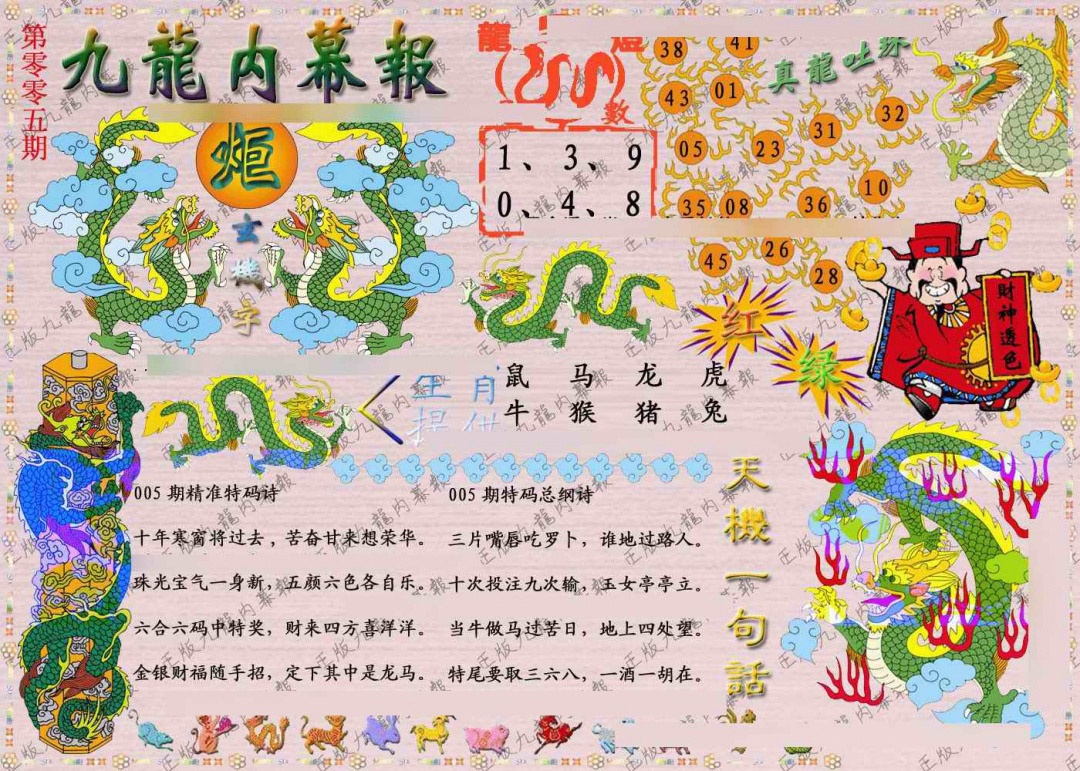 第零零五期
九龍内幕報
炬
玄機字
龍
燈
數
1、3、9
0、4、8
真龍吐珠
38
41
43
01
31
32
05
23
10
35
08
36
45
26
28
红
绿
財神透色
生肖
提供
鼠 马 龙 虎
牛 猴 猪 兔
005 期精准特码诗
十年寒窗将过去，苦奋甘来想荣华。
珠光宝气一身新，五颜六色各自乐。
六合六码中特奖，财来四方喜洋洋。
金银财福随手招，定下其中是龙马。
005 期特码总纲诗
三片嘴唇吃罗卜，谁地过路人。
十次投注九次输，玉女亭亭立。
当牛做马过苦日，地上四处望。
特尾要取三六八，一酒一胡在。
天機一句話
正版九龍内幕報